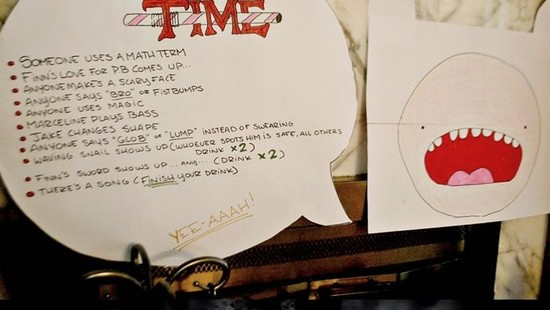 TIME
SOMEONE USES A MATH TERM
FINN'S LOVE FOR P.B COMES UP...
ANYONE MAKES A SCARY FACE
ANYONE SAYS "BRO" OR FISTBUMPS
ANYONE USES MAGIC
MARCELINE PLAYS BASS
JAKE CHANGES SHAPE
ANYONE SAYS "GLOB" OR "LUMP" INSTEAD OF SWEARING
WAVING SNAIL SHOWS UP (WHOEVER SPOTS HIM IS SAFE, ALL OTHERS
DRINK x2)
FINN'S SWORD SHOWS UP ... ANY... (DRINK x2)
THERE'S A SONG (FINISH YOUR DRINK)
YEE-AAAH!